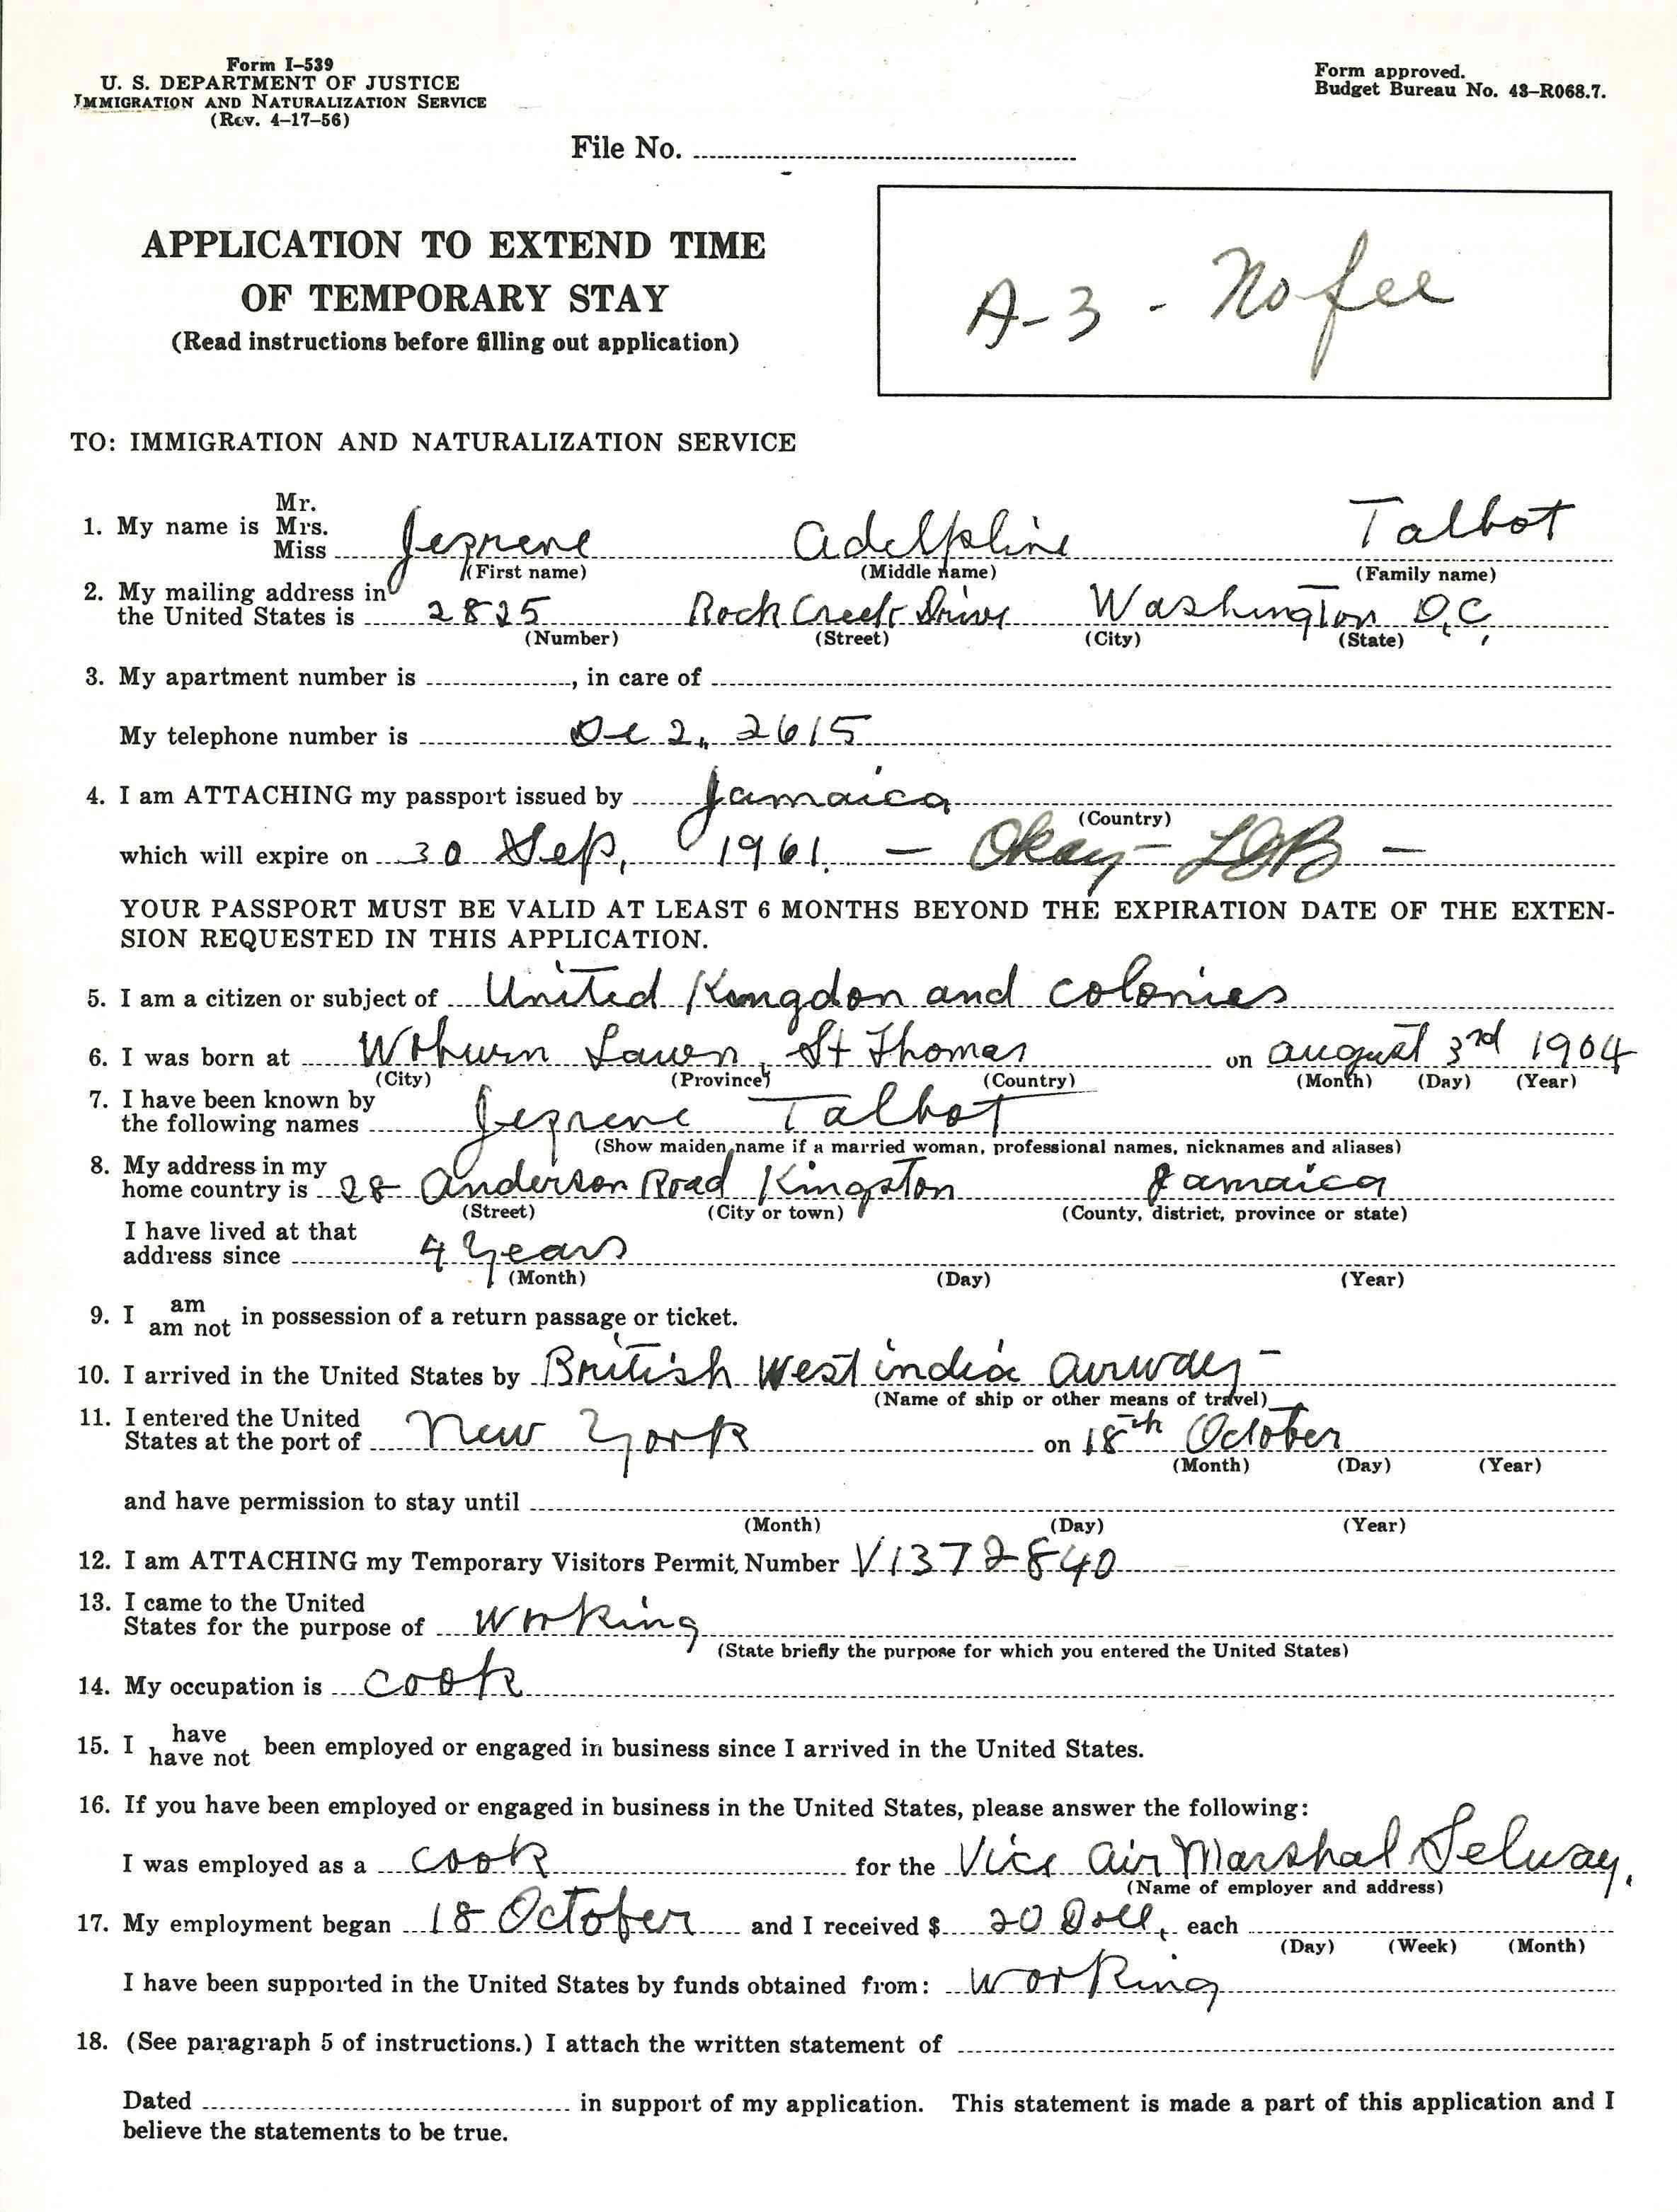 Form I-539
U. S. DEPARTMENT OF JUSTICE
IMMIGRATION AND NATURALIZATION SERVICE
(Rev. 4-17-56)
Form approved.
Budget Bureau No. 43-R068.7.
File No.
APPLICATION TO EXTEND TIME
OF TEMPORARY STAY
(Read instructions before filling out application)
A-3 - No fee
TO: IMMIGRATION AND NATURALIZATION SERVICE
1. My name is Mr. Mrs. Miss Jezrene Adelphine Talbot
(First name) (Middle name) (Family name)
2. My mailing address in
the United States is 2825 Rock Creek Drive Washington D.C.
(Number) (Street) (City) (State)
3. My apartment number is , in care of
My telephone number is De 2, 2615
4. I am ATTACHING my passport issued by Jamaica
(Country)
which will expire on 30 Sep, 1961. - Okay - LOB -
YOUR PASSPORT MUST BE VALID AT LEAST 6 MONTHS BEYOND THE EXPIRATION DATE OF THE EXTEN-
SION REQUESTED IN THIS APPLICATION.
5. I am a citizen or subject of United Kingdon and colonies
6. I was born at Woburn Lawn, St Thomas on august 3rd 1904
(City) (Province) (Country) (Month) (Day) (Year)
7. I have been known by
the following names Jezrene Talbot
(Show maiden name if a married woman, professional names, nicknames and aliases)
8. My address in my
home country is 28 Anderson Road Kingston Jamaica
(Street) (City or town) (County, district, province or state)
I have lived at that
address since 4 years
(Month) (Day) (Year)
9. I am am not in possession of a return passage or ticket.
10. I arrived in the United States by British West india airway-
(Name of ship or other means of travel)
11. I entered the United
States at the port of New York on 18th October
(Month) (Day) (Year)
and have permission to stay until
(Month) (Day) (Year)
12. I am ATTACHING my Temporary Visitors Permit, Number V1372840
13. I came to the United
States for the purpose of working
(State briefly the purpose for which you entered the United States)
14. My occupation is cook
15. I have have not been employed or engaged in business since I arrived in the United States.
16. If you have been employed or engaged in business in the United States, please answer the following:
I was employed as a cook for the Vice Air Marshal Selway.
(Name of employer and address)
17. My employment began 18 October and I received $ 20 Doll, each
(Day) (Week) (Month)
I have been supported in the United States by funds obtained from: working
18. (See paragraph 5 of instructions.) I attach the written statement of
Dated in support of my application. This statement is made a part of this application and I
believe the statements to be true.